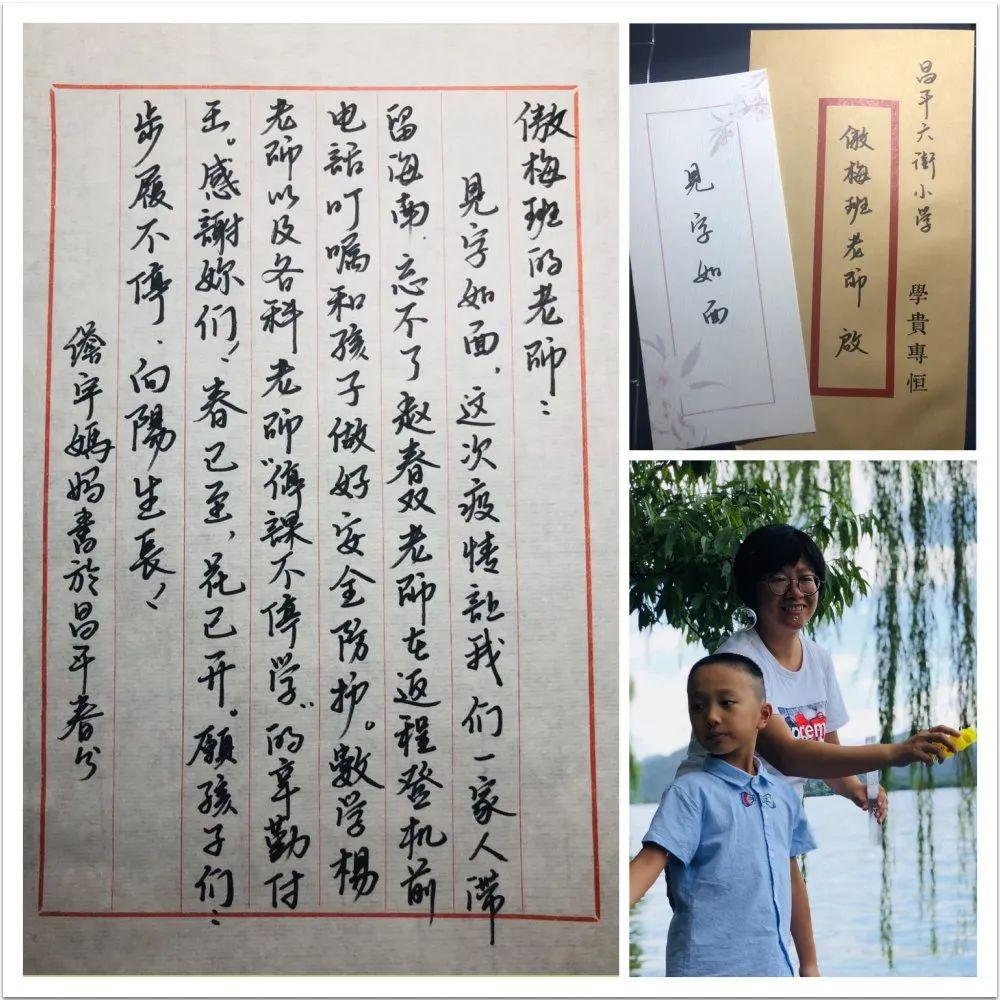 傲梅班的老師：
見字如面，这次疫情让我们一家人滞
留海南，忘不了赵春双老师在返程登机前
电話叮嘱和孩子做好安全防护。數学楊
老师以及各科老师“停課不停学”的辛勤付
出。感謝妳们！春已至，花已开。願孩子们：
步履不停、向陽生長！
宇媽妈書於昌平春分
見字如面
昌平六街小学
傲梅班老师 啟
學貴專恒
prem